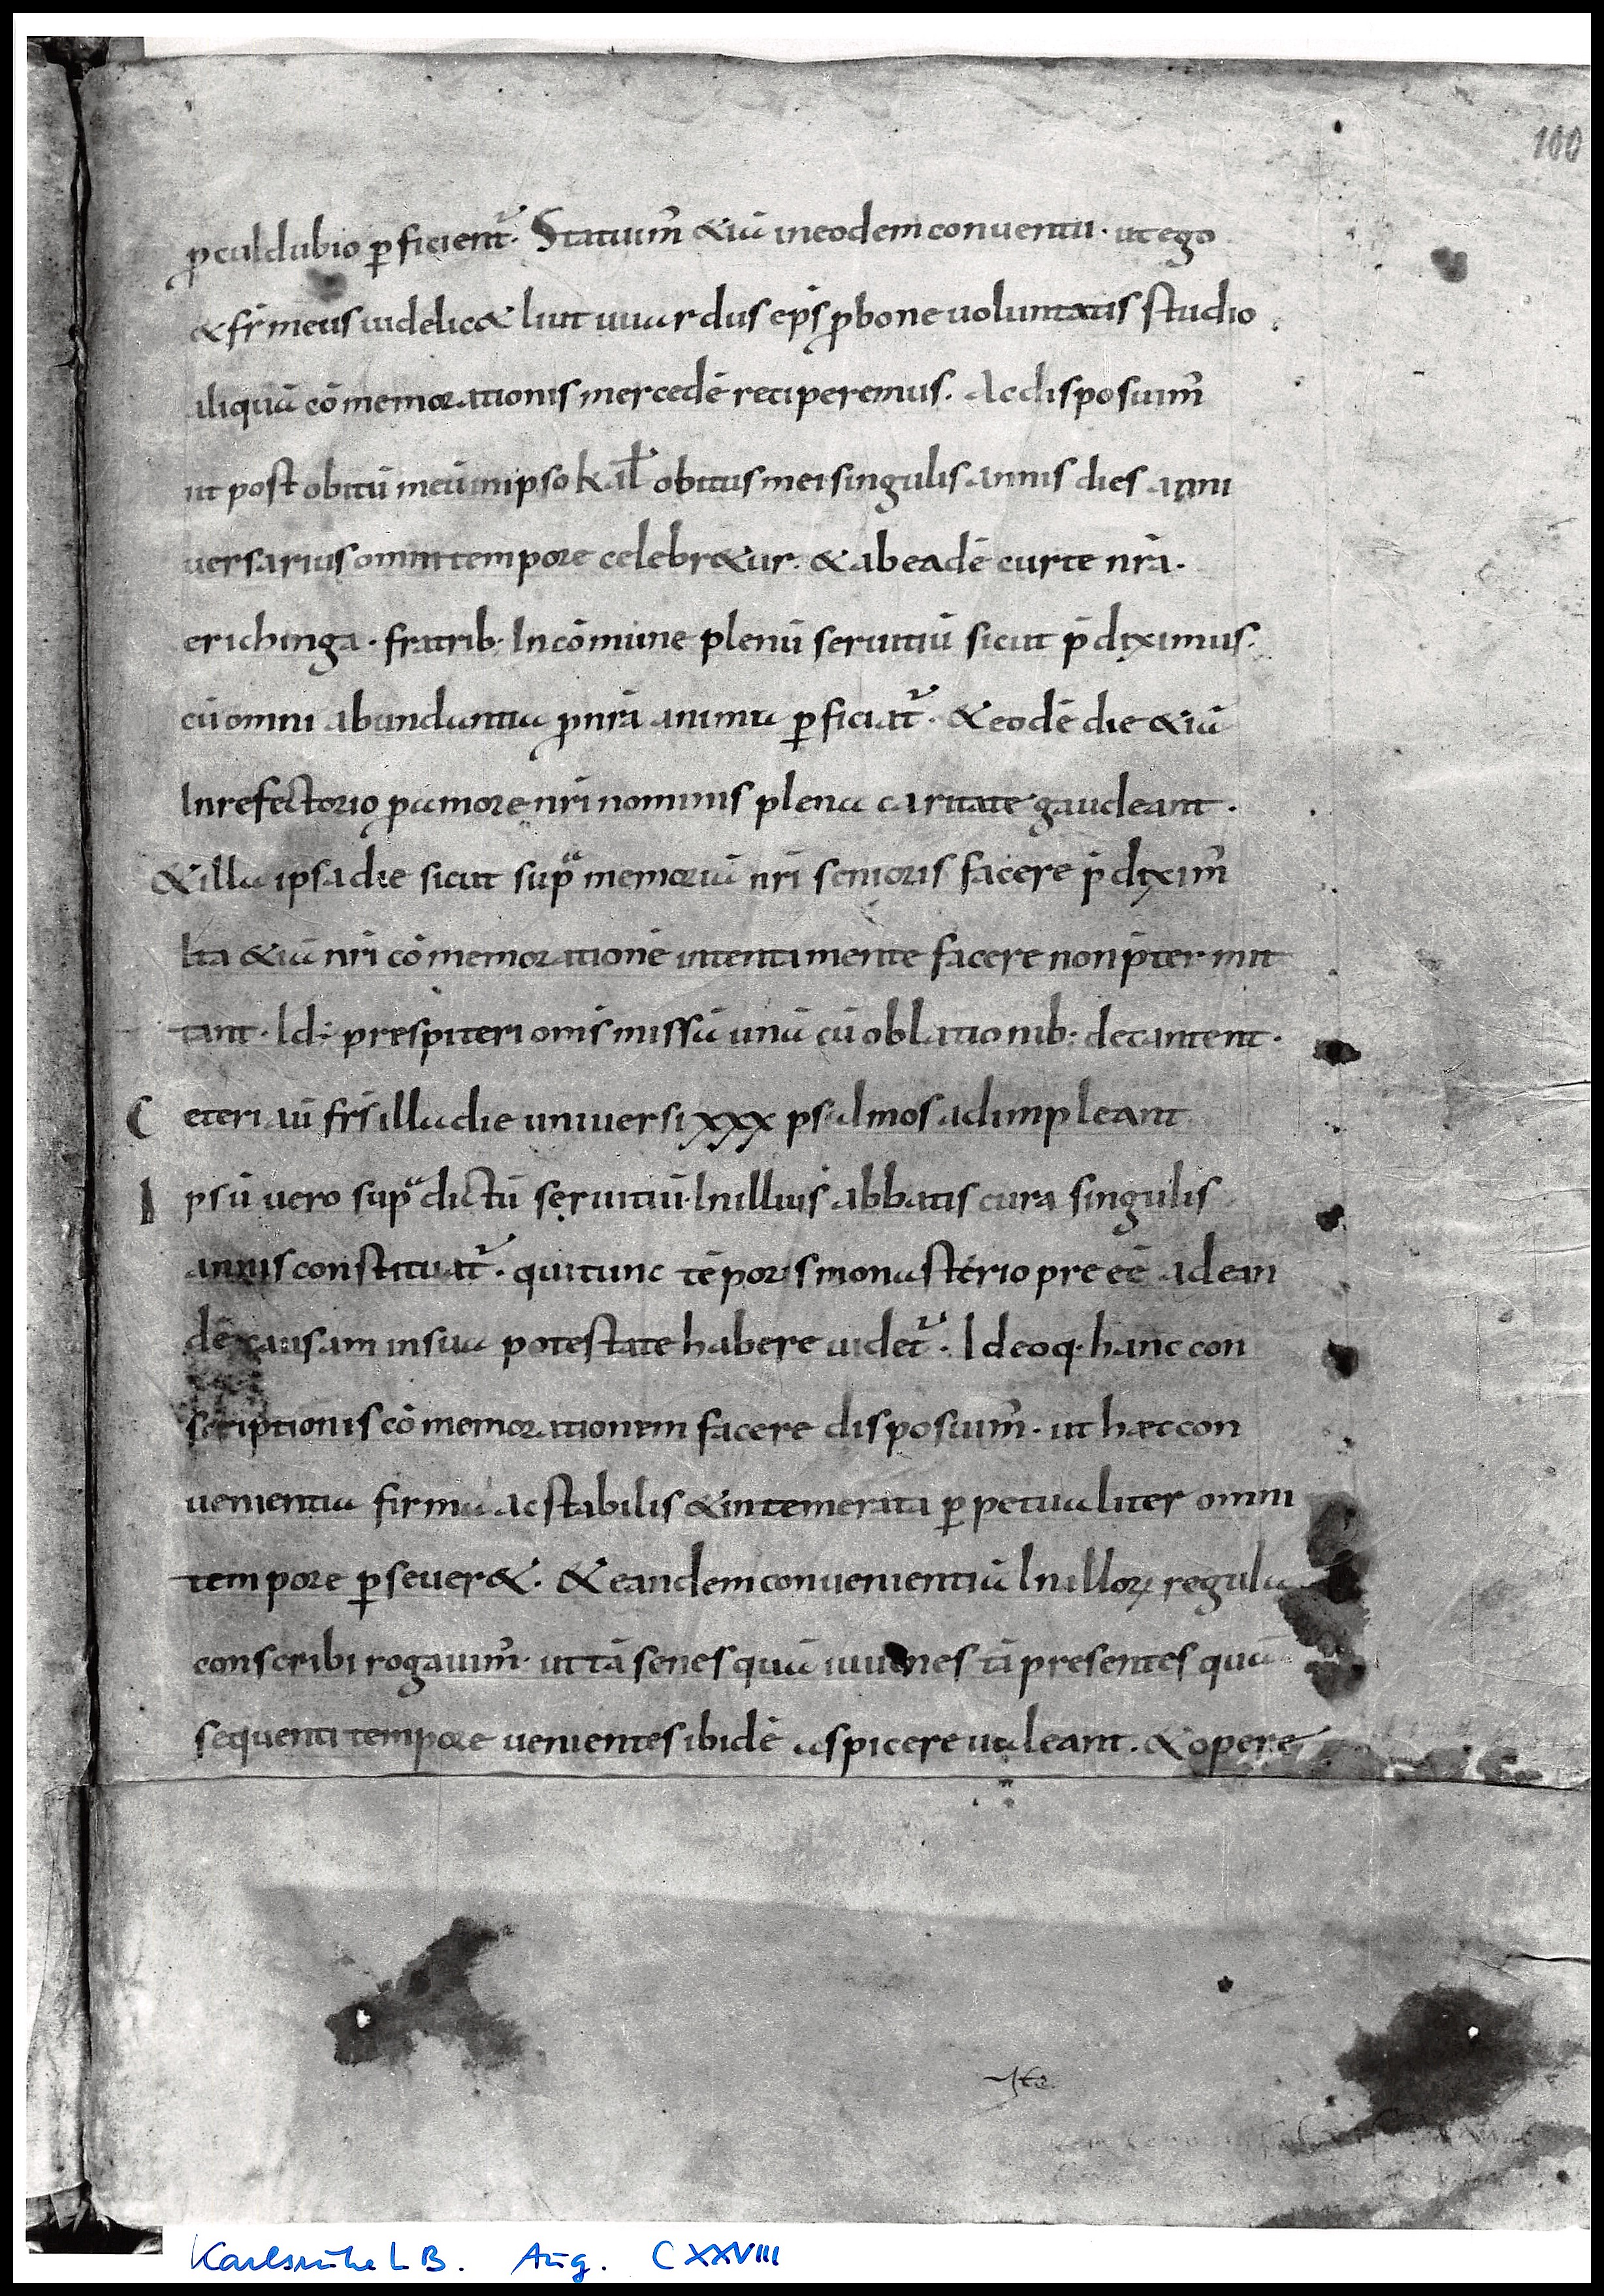 100
p̱culdubio p̱ficient᷑. Statuim᷑ &iā in eodem conuentu. ut ego
& fr̄ meus uidelic& liutuuardus ep̄s p̱ bone uoluntatis studio
aliquā cōmemorationis mercedē reciperemus. Ac disposuim᷑
ut post obitū meū in ipso kal̄ obitus mei singulis annis dies anni
uersarius omni tempore celebr&ur. & ab eadē curte nr̄a.
erichinga. fratrib. In cōmune plenū seruitiū sicut p̄diximus.
cū omni abundantia p̱ nr̄a anima p̱ficiat᷑. & eodē die &iā
In refectorio p̱ amore nr̄i nominis plena caritate gaudeant.
& illa ipsa die sicut supͣ memoriā nr̄i senioris facere p̄dixim᷑
Ita &iā nr̄i cōmemorationē intenti mente facere non p̄termit
tant. Id: prespiteri om̄s missā unā cū oblationib: decantent.
Ceteri aū fr̄s illa die uniuersi xxx psalmos adimpleant
Ipsū uero supͣdictū seruitiū. In illius abbatis cura singulis
annis constituat᷑. qui tunc tēporis monasterio pre eē ad ean
dē causam in sua potestate habere uidet᷑. Ideoq. hanc con
scriptionis cōmemorationem facere disposuim᷑. ut haec con
uenientia firma ac stabilis & intemerata p̱petualiter omni
tempore p̱seuer&. & eandem conuenientiā In illoꝝ regula
conscribi rogauim᷑. ut tā senes quā iuuenes tā presentes quā
sequenti tempore uenientes ibidē aspicere ualeant. & opere
Karlsruhe LB. Aug. CXXVIII